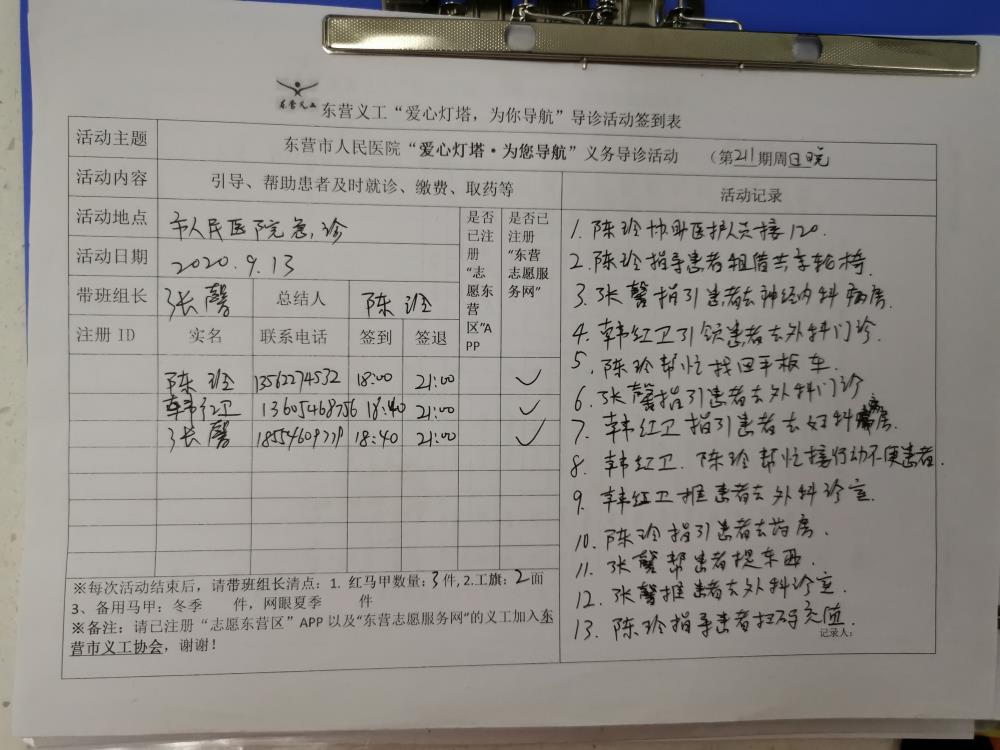 东营义工
东营义工“爱心灯塔，为你导航”导诊活动签到表
活动主题 东营市人民医院“爱心灯塔·为您导航”义务导诊活动 （第211期周日晚
活动内容 引导、帮助患者及时就诊、缴费、取药等 活动记录
活动地点 市人民医院急诊
是否已注册“志愿东营区”APP
是否已注册“东营志愿服务网”
活动日期 2020.9.13
带班组长 张馨 总结人 陈玲
注册 ID 实名 联系电话 签到 签退
陈玲 13562274532 18:00 21:00 ✓
韩红卫 13605468756 18:40 21:00 ✓
张馨 18554609779 18:40 21:00 ✓
1. 陈玲协助医护人员接120.
2. 陈玲指导患者租借共享轮椅.
3. 张馨指引患者去神经内科病房.
4. 韩红卫引领患者去外科门诊.
5. 陈玲帮忙找回平板车.
6. 张馨指引患者去外科门诊
7. 韩红卫指引患者去妇科病房.
8. 韩红卫.陈玲帮忙接行动不便患者.
9. 韩红卫推患者去外科诊室.
10. 陈玲指引患者去药房.
11. 张馨帮患者提东西.
12. 张馨推患者去外科诊室.
13. 陈玲指导患者扫码充值
记录人：
※每次活动结束后，请带班组长清点：1. 红马甲数量：3件,2.工旗：2面
3、备用马甲：冬季 件，网眼夏季 件
※备注：请已注册“志愿东营区”APP 以及“东营志愿服务网”的义工加入东
营市义工协会，谢谢！